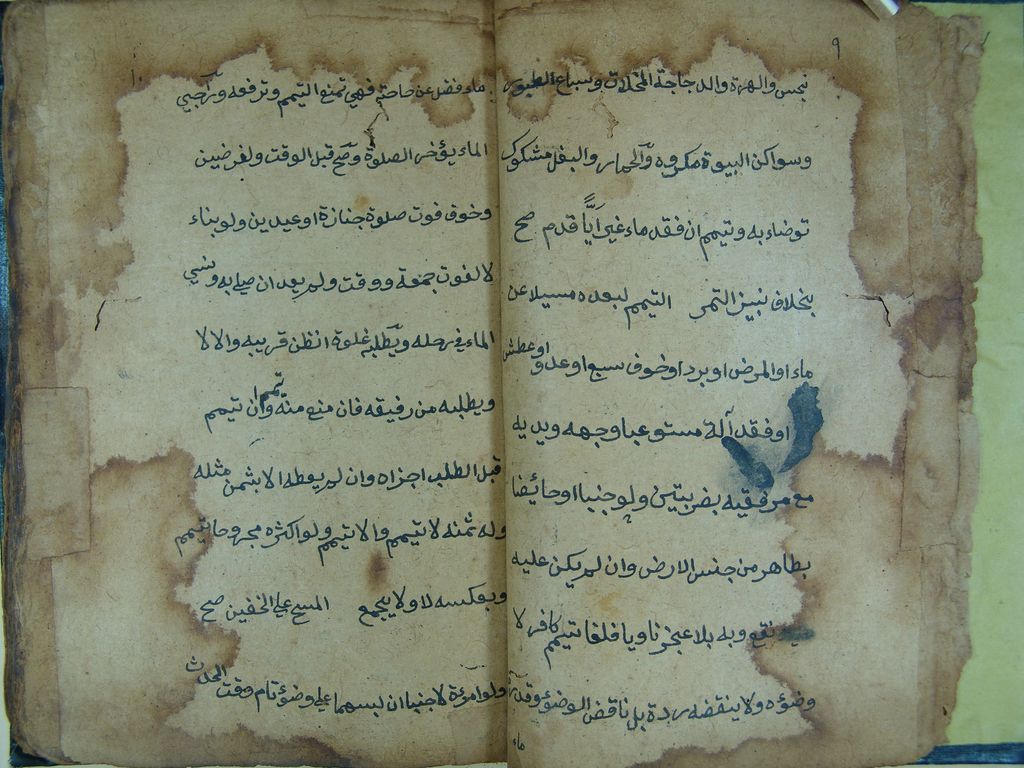 ٩
نجس والهرة والدجاجة المخلات وسباع الطيور
وسواكن البيوة مكروه والحمار والبغل مشكوك
توضاء به وتيمم ان فقد ماء غير ايًّا قدم صح
بخلاف نبيز التمر التيمم لبعده مسيلا عن
ماء او المرض او برد او خوف سبع او عدو او عطش
او فقد آلة مستوعبا وجهه ويديه
مع مرفقيه بضربتين ولو جنبا او حائضا
بطاهر من جنس الارض وان لم يكن عليه
نقع وبه بلا عجز ناويا فلغا تيمم كافر لا
وضوءه ولا ينقضه ردة بل ناقض الوضوء وقدرة
ماء
١٠
ماء فضل عن حاجته فهي تمنع التيمم وترفعه وراجي
الماء يؤخر الصلوة وصح قبل الوقت ولفرضين
وخوف فوت صلوة جنازة او عيدين ولو بناء
لا لفوت جمعة ووقت ولم يعد ان صلي به ونسي
الماء في رحله ويطلبه غلوة ان ظن قريبه والا لا
ويطلبه من رفيقه فان منع منه تيمم وان تيمم
قبل الطلب اجزاه وان لم يعطه الا بثمن مثله
وله ثمنه لا تيمم والا تيمم ولو اكثره مجروحا تيمم
وبعكسه لا ولا يجمع المسح علي الخفين صح
ولو امرءة لا جنبا ان لبسهما علي وضوء تام وقت الحدث